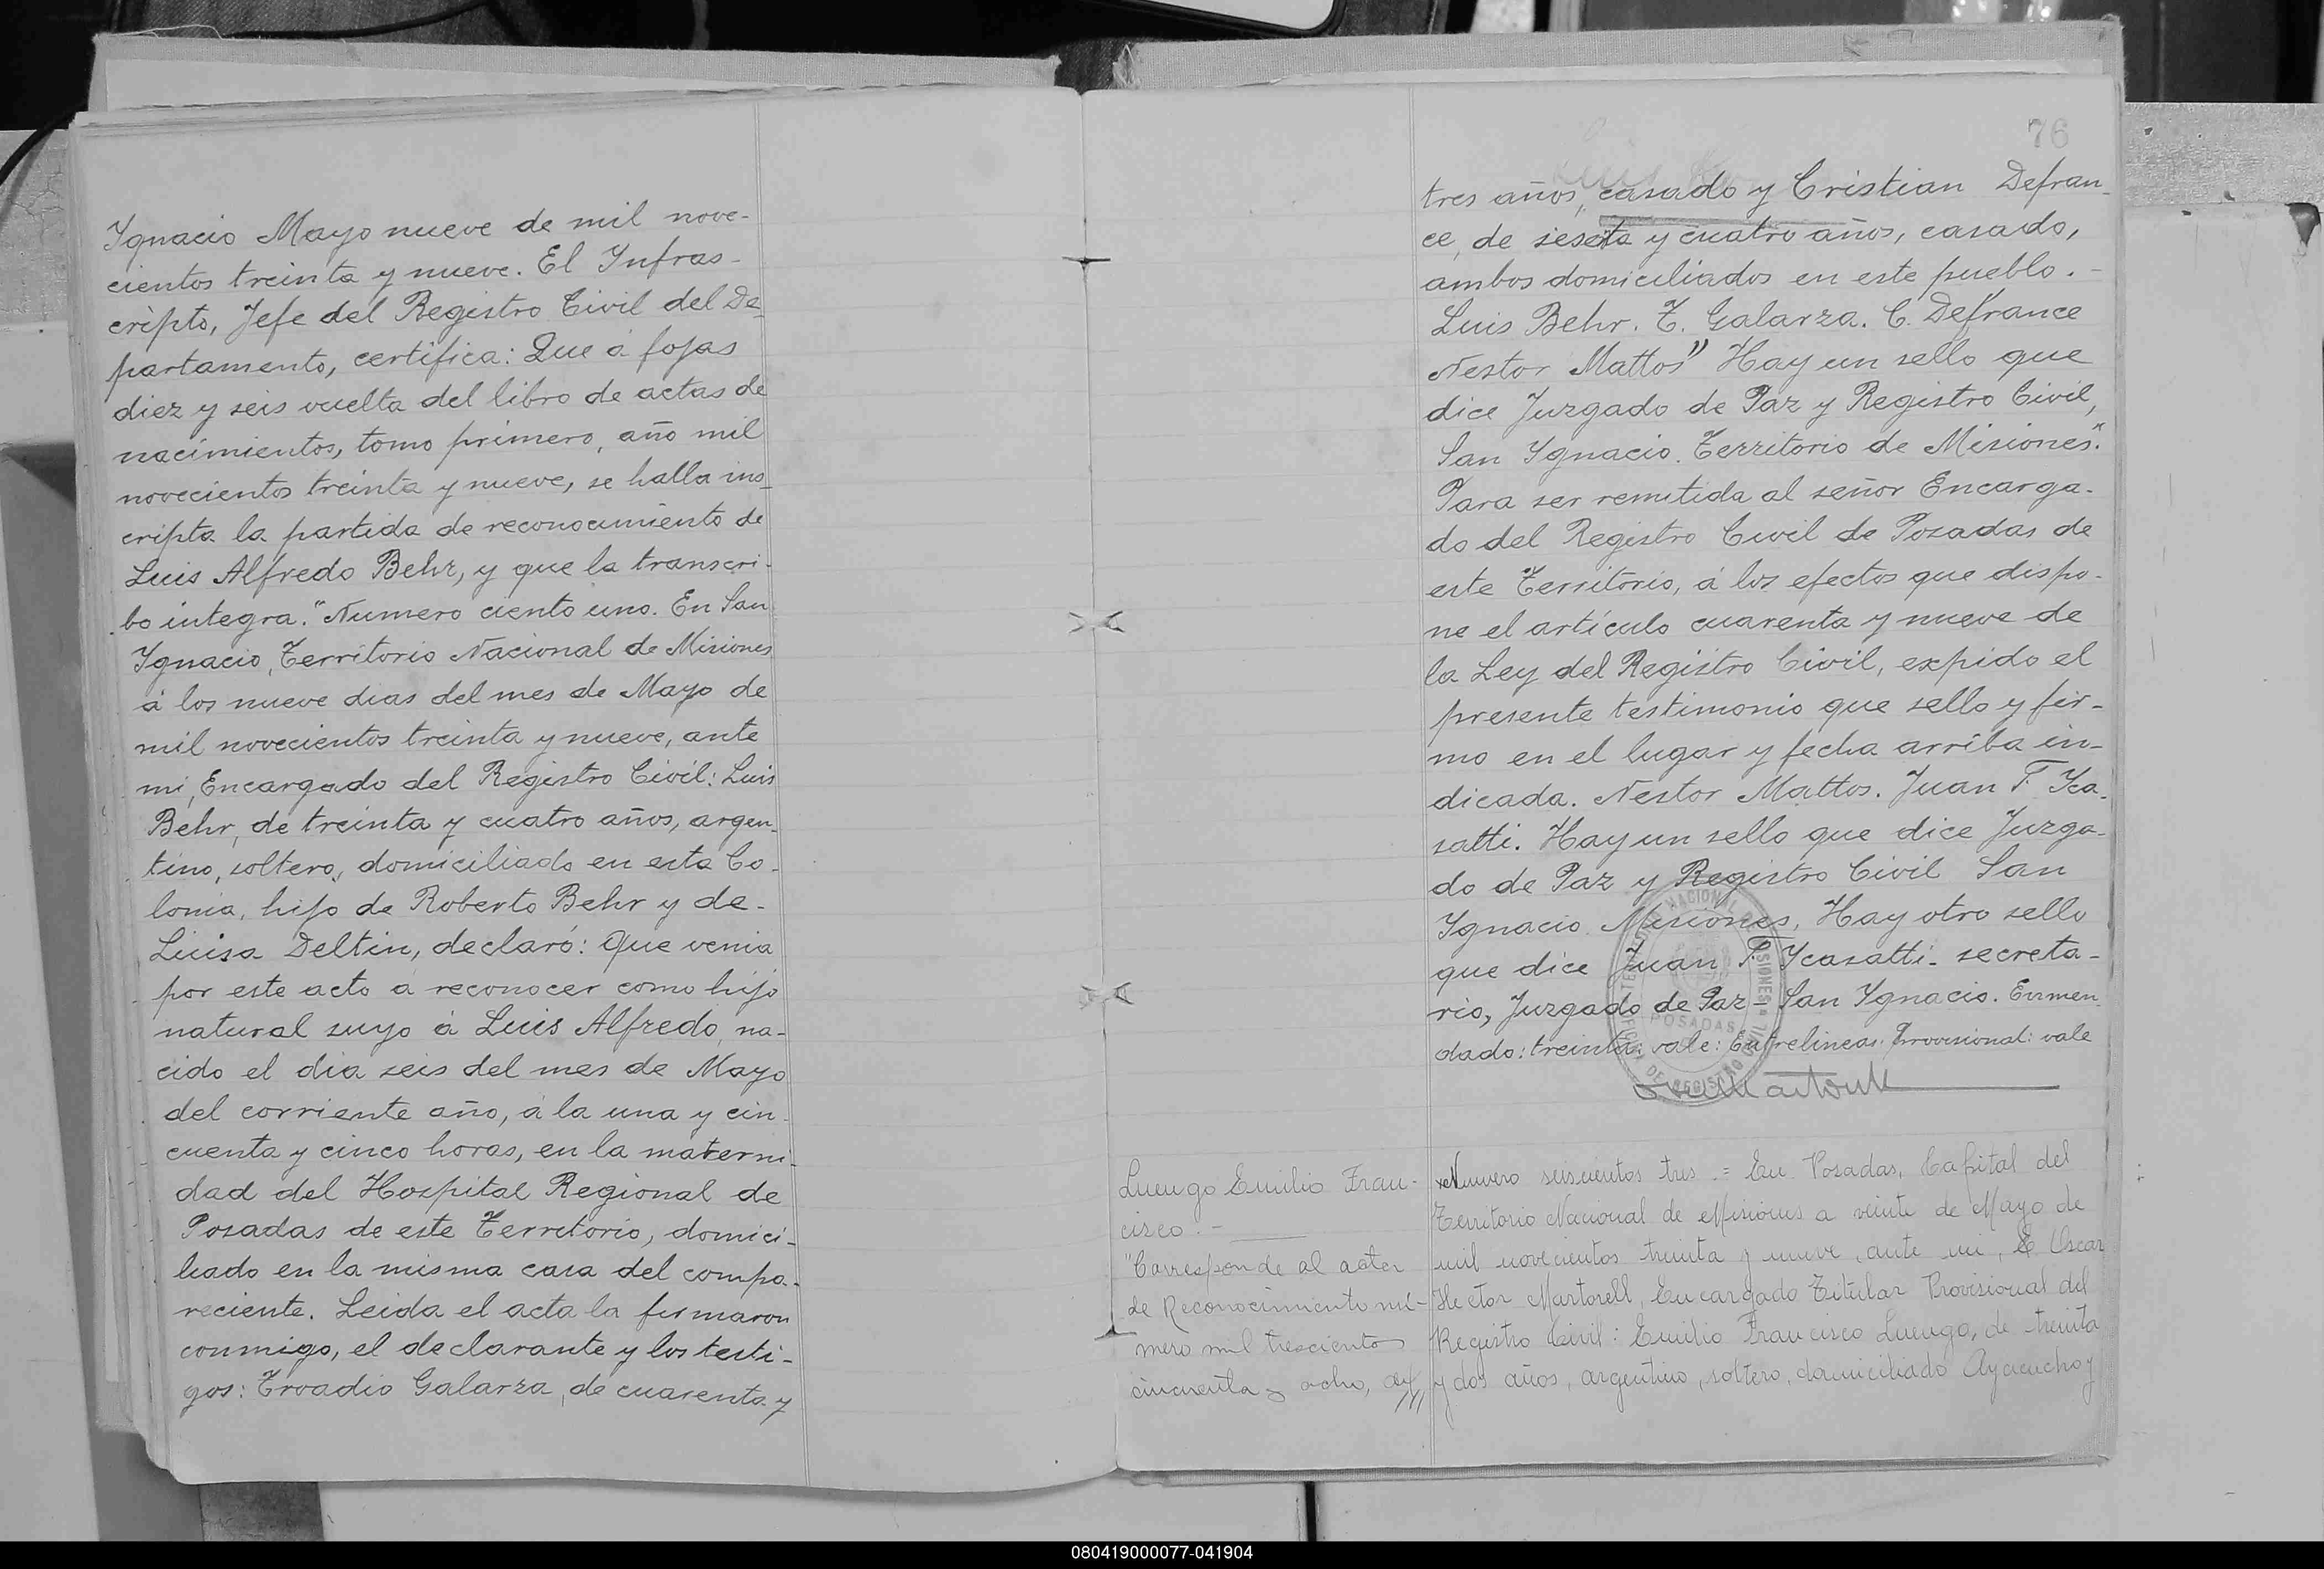 Ygnacio Mayo nueve de mil nove-
cientos treinta y nueve. El Infras-
cripto, Jefe del Registro Civil del De-
partamento, certifica: Que á fojas
diez y seis vuelta del libro de actas de
nacimientos, tomo primero, año mil
novecientos treinta y nueve, se halla ins-
cripta la partida de reconocimiento de
Luis Alfredo Behr, y que la transcri-
bo integra. "Numero ciento uno. En San
Ygnacio, Territorio Nacional de Misiones
á los nueve dias del mes de Mayo de
mil novecientos treinta y nueve, ante
mi, Encargado del Registro Civil: Luis
Behr, de treinta y cuatro años, argen-
tino, soltero, domiciliado en esta Co-
lonia, hijo de Roberto Behr y de-
Luisa Deltin, declaró: Que venia
por este acto á reconocer como hijo
natural suyo á Luis Alfredo, na-
cido el dia seis del mes de Mayo
del corriente año, á la una y cin-
cuenta y cinco horas, en la materni-
dad del Hospital Regional de
Posadas de este Territorio, domici-
liado en la misma casa del compa-
reciente. Leida el acta la firmaron
conmigo, el declarante y los testi-
gos: Troadio Galarza, de cuarenta y
76
tres años, casado y Cristian Defran-
ce, de seseta y cuatro años, casado,
ambos domiciliados en este pueblo.-
Luis Behr. T. Galarza. C. Defrance
Nestor Mattos" Hay un sello que
dice Juzgado de Paz y Registro Civil,
San Ygnacio. Territorio de Misiones."
Para ser remitida al señor Encarga-
do del Registro Civil de Posadas de
este Territorio, á los efectos que dispo-
ne el artículo cuarenta y nueve de
la Ley del Registro Civil, expido el
presente testimonio que sello y fir-
mo en el lugar y fecha arriba in-
dicada. Nestor Mattos. Juan F. Yca-
satti. Hay un sello que dice Juzga-
do de Paz y Registro Civil San
Ygnacio. Misiones, Hay otro sello
que dice Juan F. Ycasatti- secreta-
rio, Juzgado de Paz- San Ygnacio. Enmen-
dado: treinta: vale: Entrelineas: Provisional: vale
Luengo Emilio Fran-
cisco.-
"Corresponde al acta
de Reconocimiento nú-
mero mil trescientos
cincuenta y ocho, del
Numero seiscientos tres.= En Posadas, Capital del
Territorio Nacional de Misiones a veinte de Mayo de
mil novecientos treinta y nueve, ante mi, Oscar
Hector Martorell, Encargado Titular Provisional del
Registro Civil: Emilio Francisco Luengo, de treinta
y dos años, argentino, soltero, domiciliado Ayacucho y
POSADAS
080419000077-041904